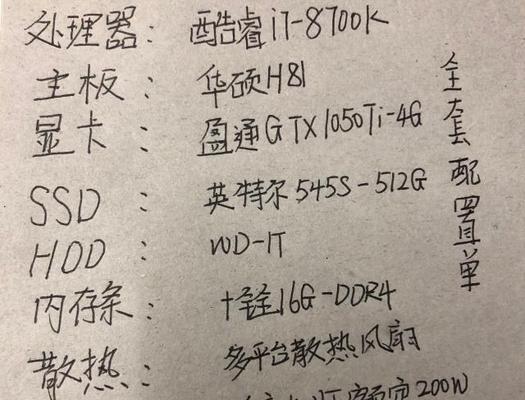 处理器：酷睿i7-8700K
主板：华硕H81
显卡：盈通GTX1050Ti-4G
SSD：英特尔545S-512G
HDD：WD-1T
内存条：十铨16G-DDR4
散热：多平台散热风扇
额定200W
全套配置单